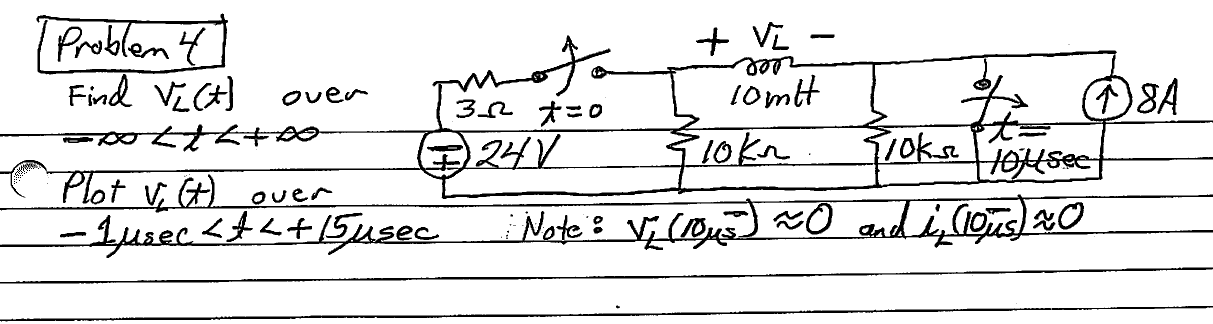 Problem 4
Find V_L(t) over
-∞ < t < +∞
Plot V_L(t) over
-1μsec < t < +15μsec
+ V_L -
3Ω t=0
10mH
24V
10kΩ
10kΩ
t=
10μsec
8A
Note: V_L(10μs⁻) ≈ 0 and i_L(10μs⁻) ≈ 0